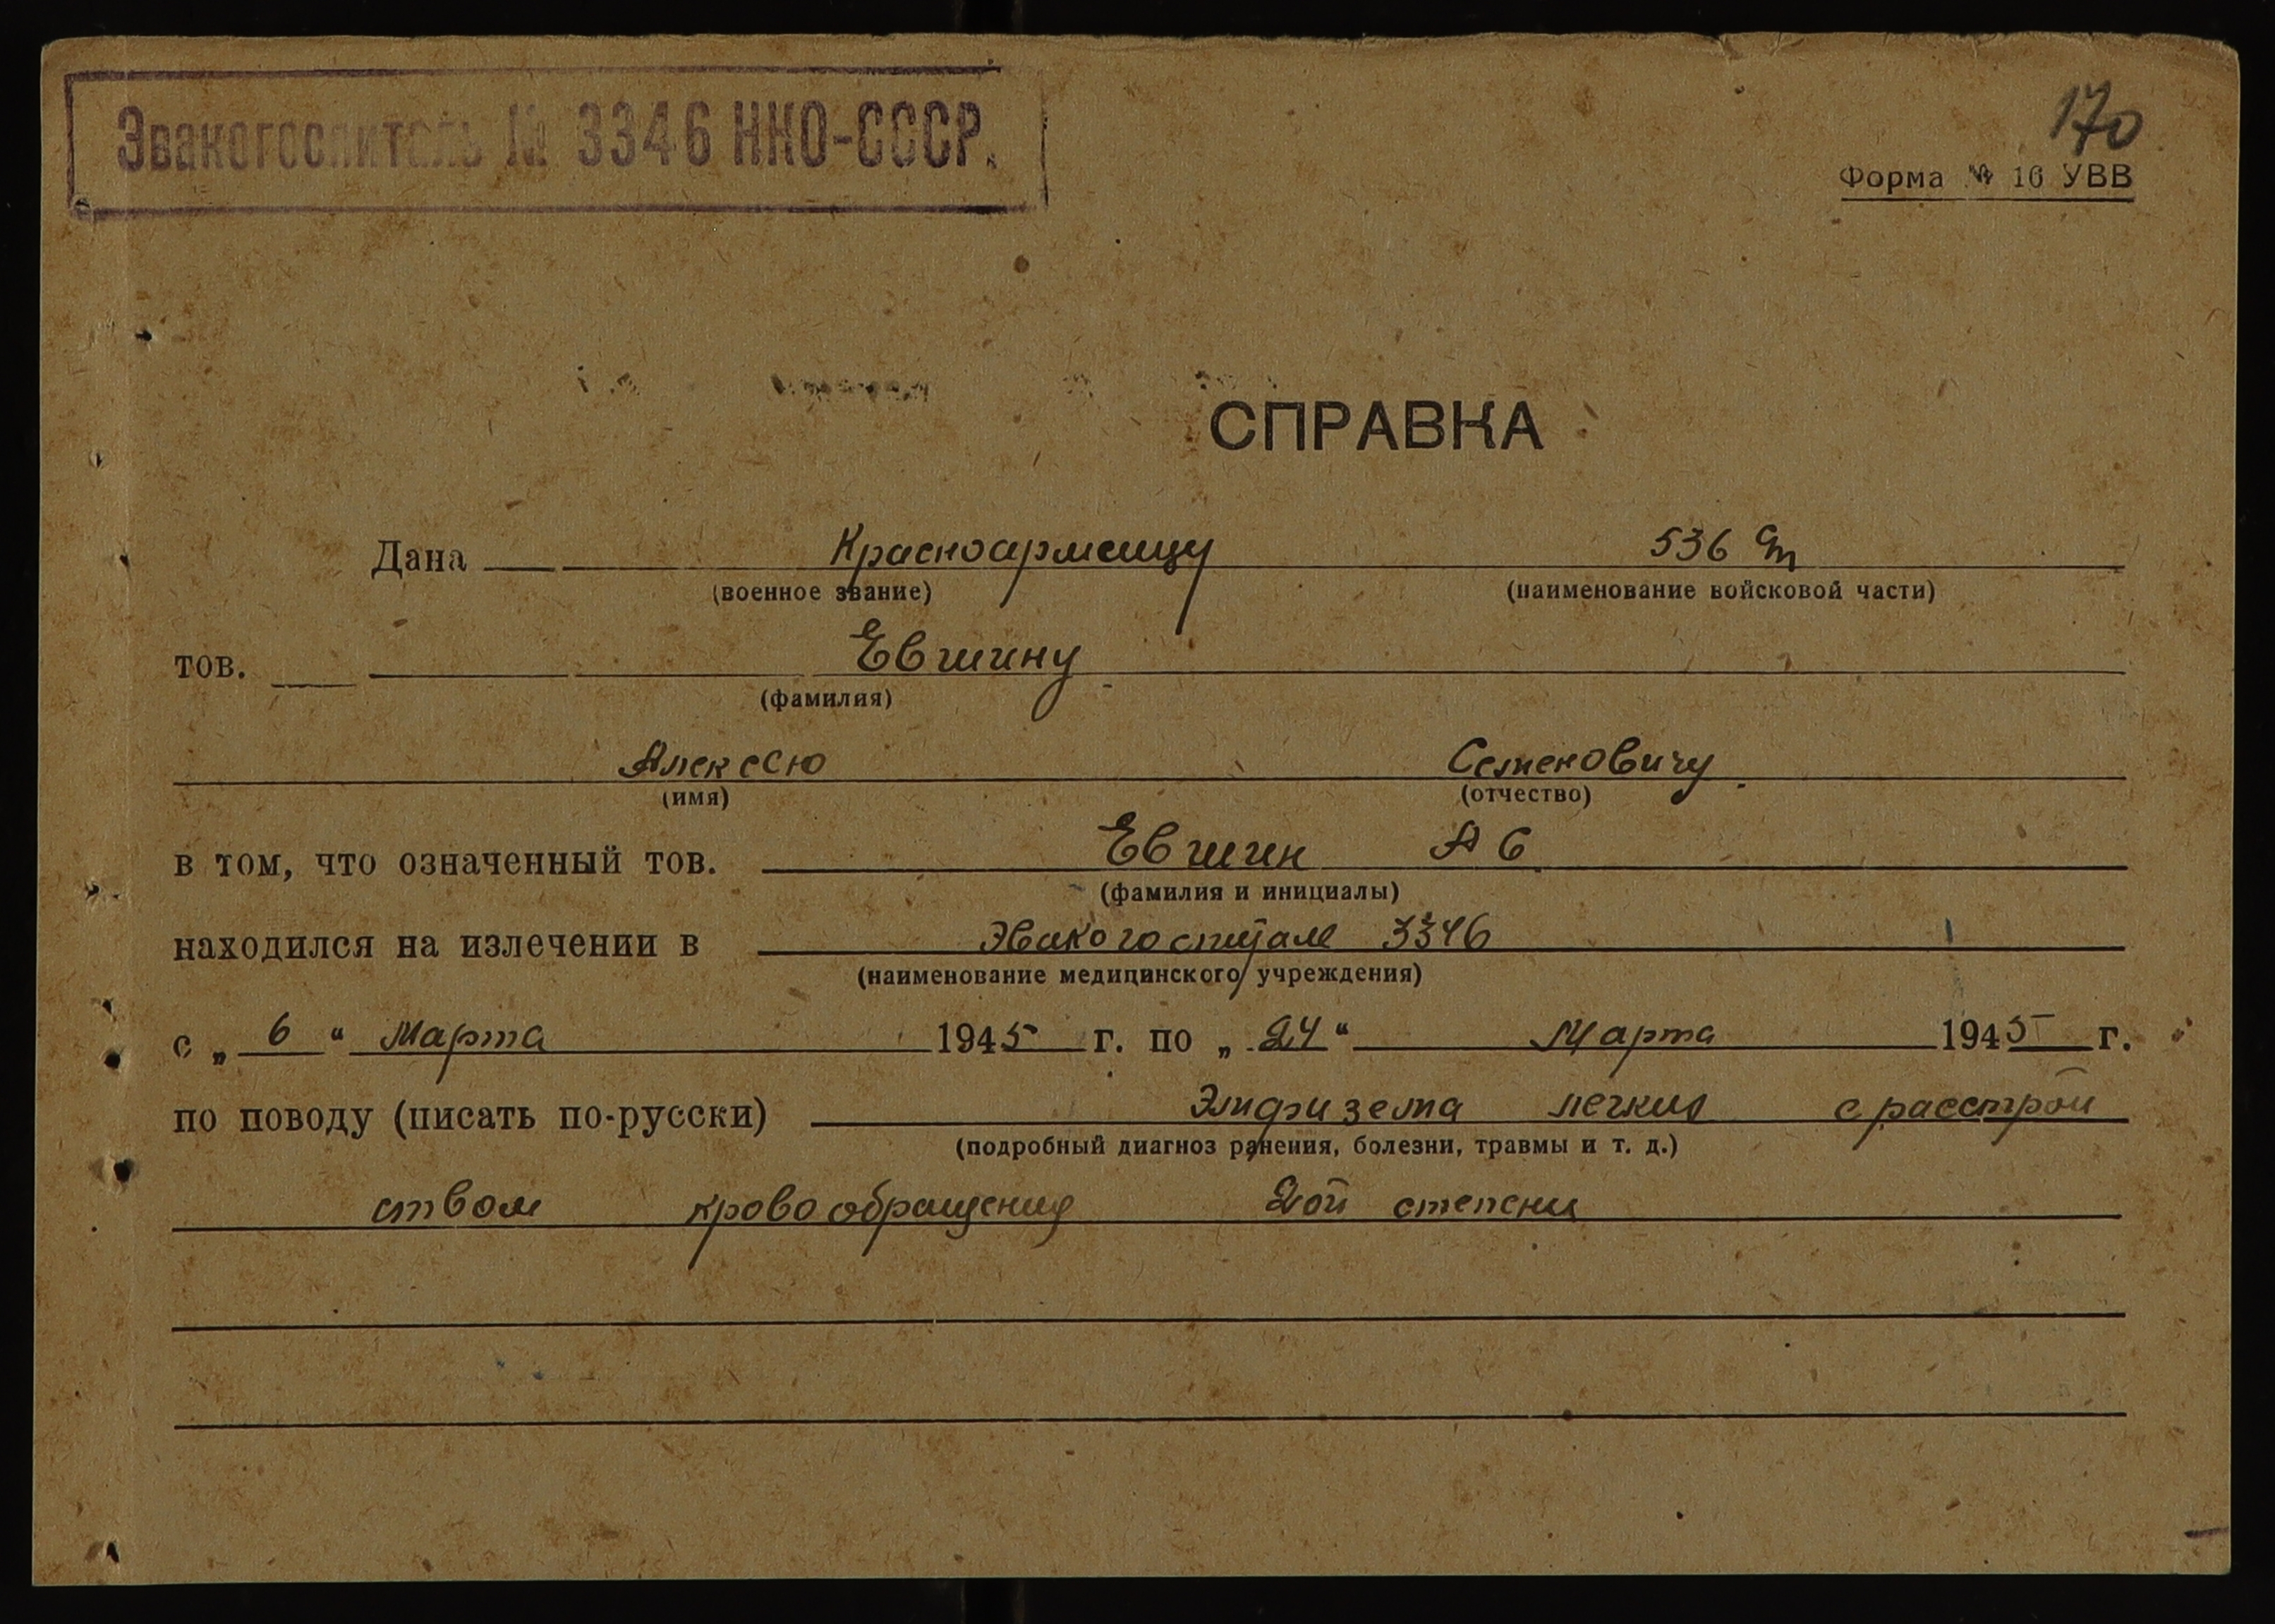 Эвакогоспиталь № 3346 НКО-СССР.
170
Форма № 16 УВВ
СПРАВКА
Дана Красноармейцу 536
(военное звание) (наименование войсковой части)
тов. Евшину
(фамилия)
Алексею Семеновичу
(имя) (отчество)
в том, что означенный тов. Евшин А С
(фамилия и инициалы)
находился на излечении в Эвакогоспитале 3346
(наименование медицинского учреждения)
с „ 6 “ Марта 1945 г. по „ 24 “ Марта 1945 г.
по поводу (писать по-русски) Эмфизема легких с расстрой
(подробный диагноз ранения, болезни, травмы и т. д.)
ством кровообращения 2ой степени